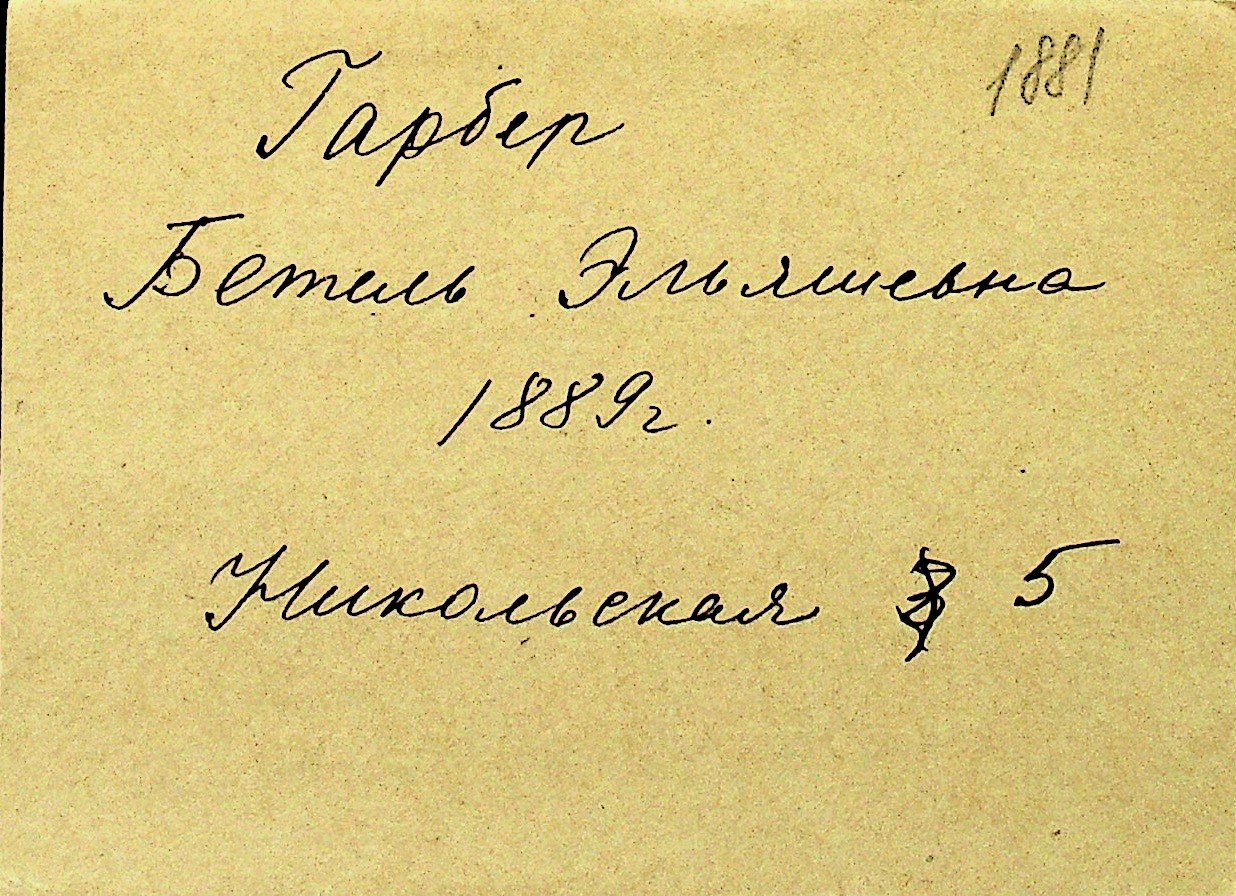 1881
Гарбер
Бетель Эльяшевна
1889г.
Никольская 5